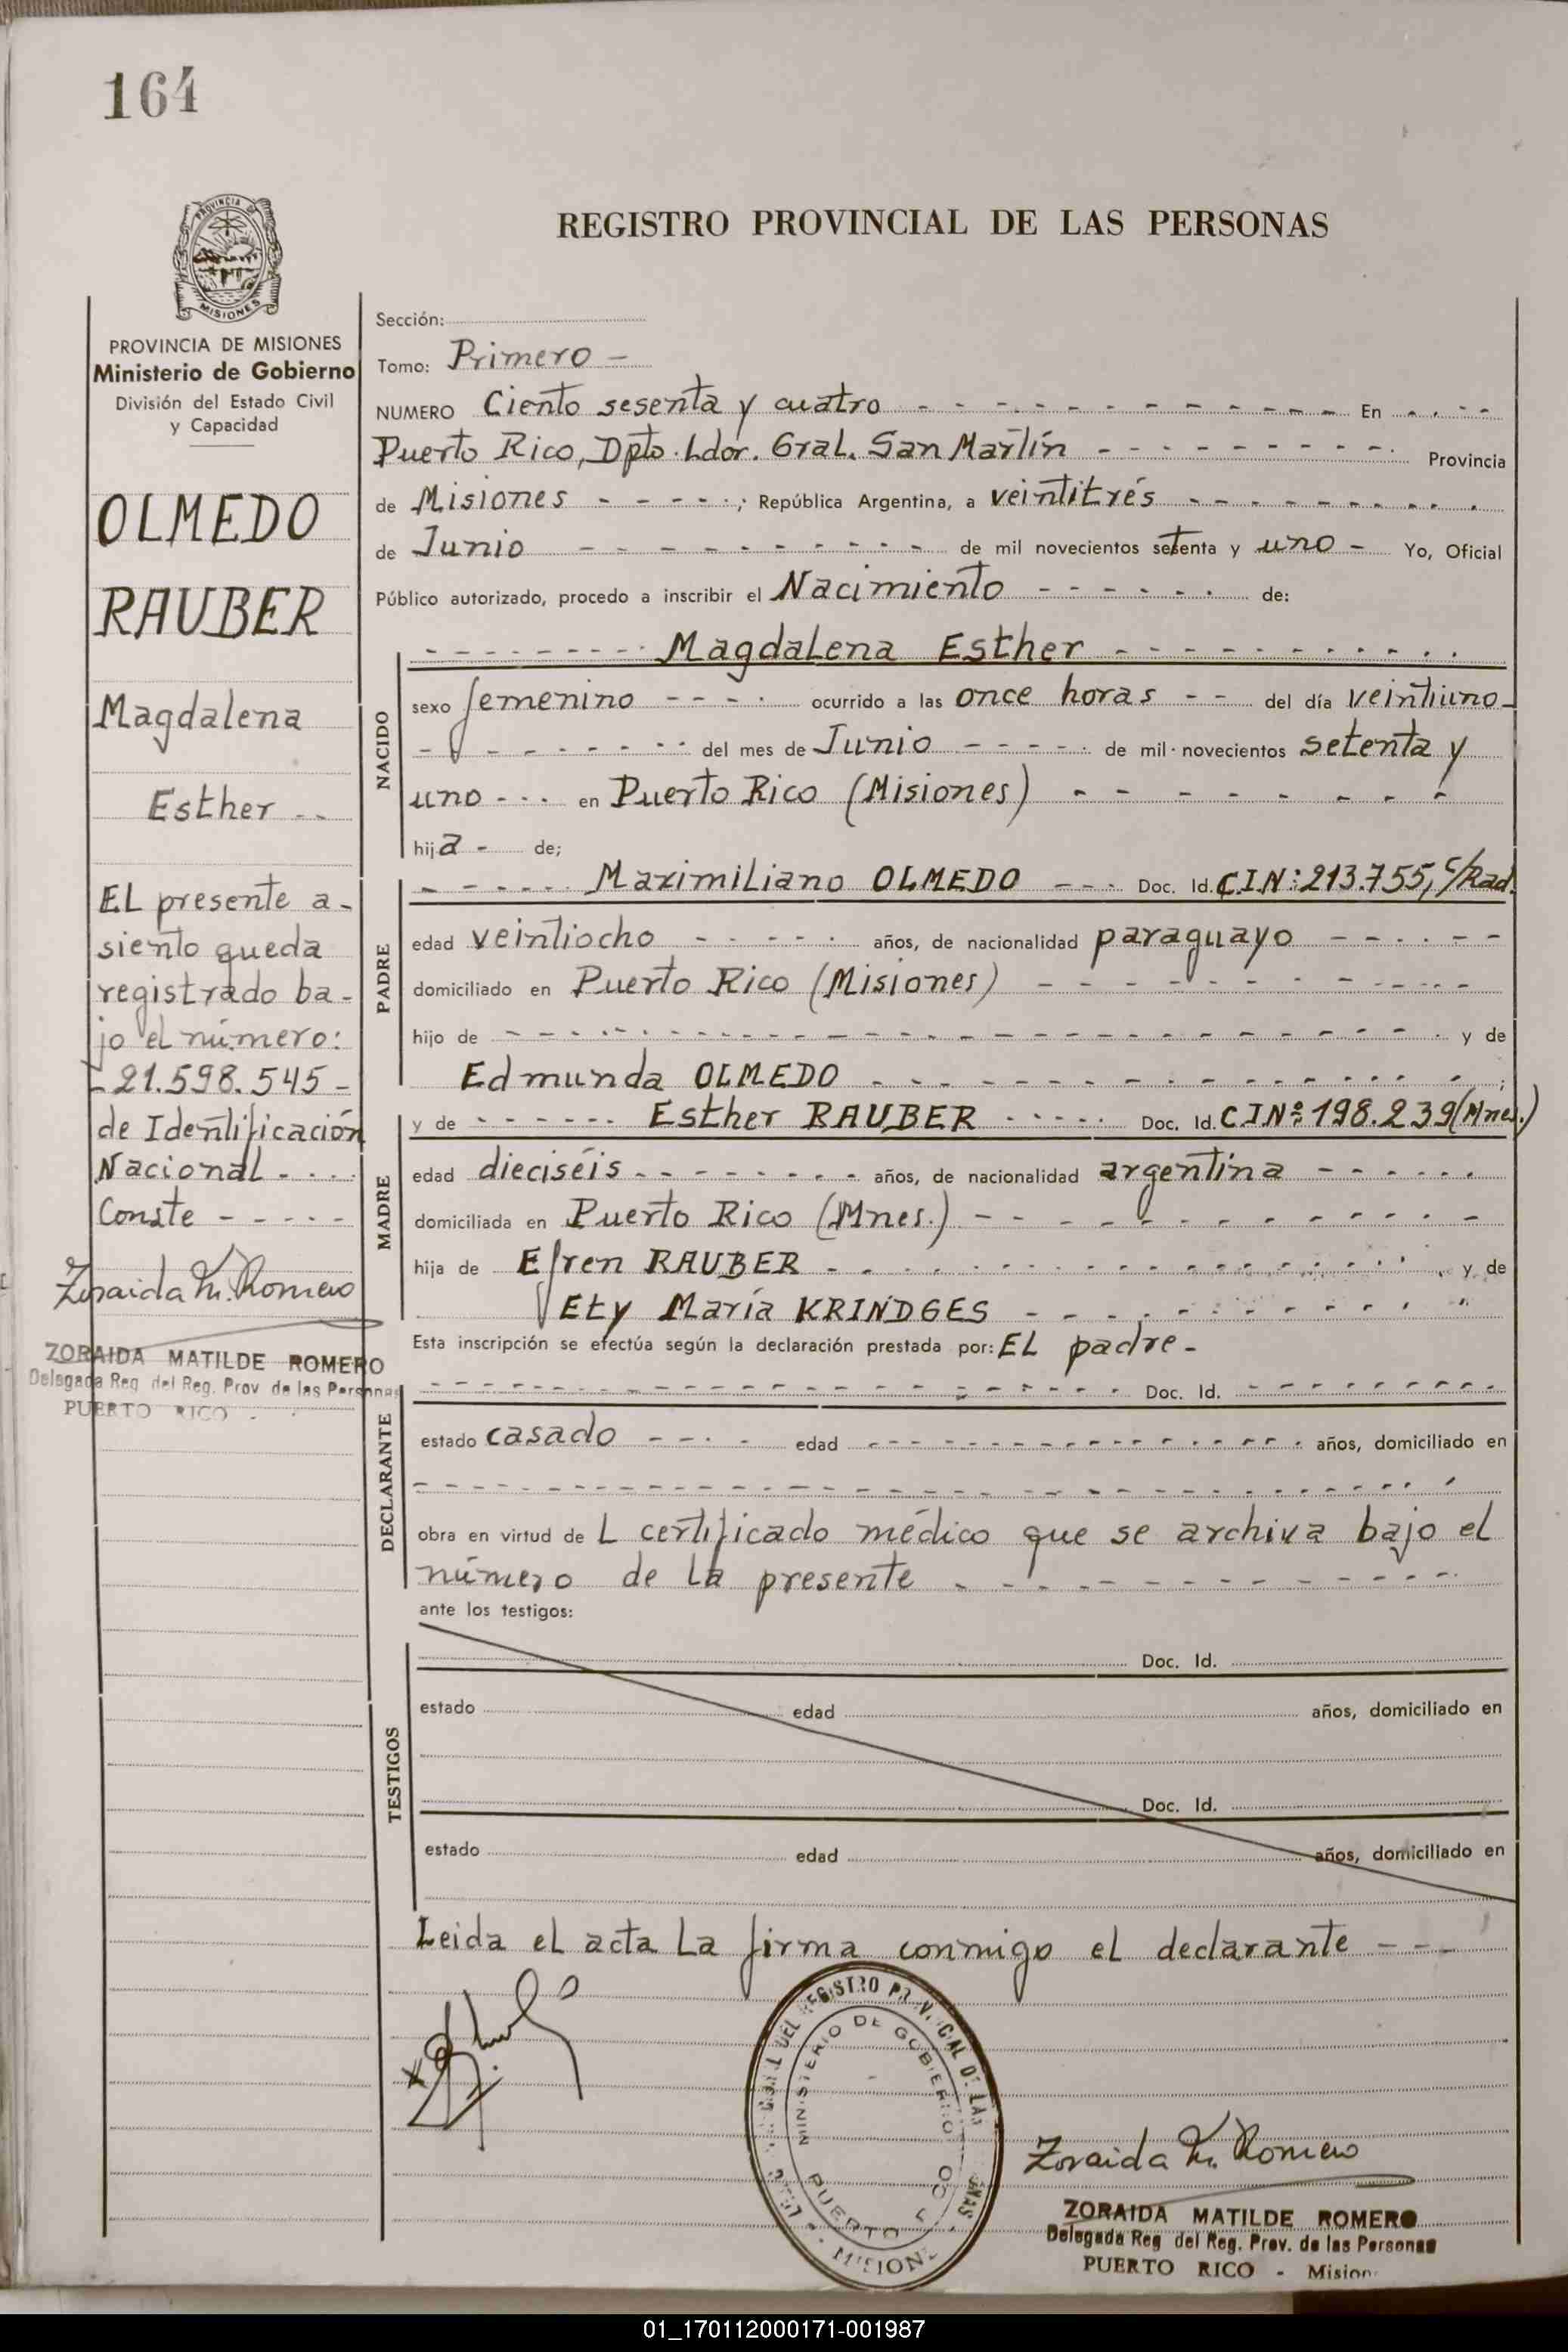 164
PROVINCIA DE
MISIONES
PROVINCIA DE MISIONES
Ministerio de Gobierno
División del Estado Civil
y Capacidad
OLMEDO
RAUBER
Magdalena
Esther - -
EL presente a-
siento queda
registrado ba-
jo el número:
- 21.598.545 -
de Identificación
Nacional - - - -
Conste - - - - -
Zoraida M. Romero
ZORAIDA MATILDE ROMERO
Delegada Reg del Reg. Prov de las Personas
PUERTO RICO -
REGISTRO PROVINCIAL DE LAS PERSONAS
Sección:
Tomo: Primero -
NUMERO Ciento sesenta y cuatro - - - - - - - - - - - - - En - - - -
Puerto Rico, Dpto. Ldor. Gral. San Martín - - - - - - - - - - Provincia
de Misiones - - - - - ; República Argentina, a veintitrés - - - - - - - - - -
de Junio - - - - - - - - - - - de mil novecientos setenta y uno - Yo, Oficial
Público autorizado, procedo a inscribir el Nacimiento - - - - - - de:
- - - - - - - - - Magdalena Esther - - - - - - - - - - - -
NACIDO
sexo femenino - - - - ocurrido a las once horas - - del día veintiuno -
- - - - - - - - - del mes de Junio - - - - - de mil novecientos setenta y
uno - - - en Puerto Rico (Misiones) - - - - - - - -
hija - de;
PADRE
- - - - - - Maximiliano OLMEDO - - - Doc. Id. C.I.Nº: 213.755, C/Rad.
edad veintiocho - - - - - años, de nacionalidad paraguayo - - - - - -
domiciliado en Puerto Rico (Misiones) - - - - - - - - - - - -
hijo de - - - - - - - - - - - - - - - - - - - - - - - - y de
Edmunda OLMEDO - - - - - - - - - - - - - - - - - ;
MADRE
y de - - - - - - Esther RAUBER - - - - - Doc. Id. C.I.Nº: 198.239 (Mnes.)
edad dieciséis - - - - - - - - años, de nacionalidad argentina - - - - - -
domiciliada en Puerto Rico (Mnes.) - - - - - - - - - - - - -
hija de Efren RAUBER - - - - - - - - - - - - - - - - - y de
Ety María KRINDGES - - - - - - - - - - - -
Esta inscripción se efectúa según la declaración prestada por: EL padre -
DECLARANTE
- - - - - - - - - - - - - - - - - - - - - - Doc. Id. - - - - - - - - - -
estado casado - - - - edad - - - - - - - - - - - - - - - - años, domiciliado en
- - - - - - - - - - - - - - - - - - - - - - - - - - - - - -
obra en virtud de L certificado médico que se archiva bajo el
número de la presente - - - - - - - - - - - - - - -
ante los testigos:
TESTIGOS
Doc. Id.
estado edad años, domiciliado en
Doc. Id.
estado edad años, domiciliado en
Leida el acta la firma conmigo el declarante - - -
DEL REGISTRO PROVINCIAL DE LAS
MINISTERIO DE GOBIERNO
PUERTO
MISIONE
Zoraida M. Romero
ZORAIDA MATILDE ROMERO
Delegada Reg del Reg. Prov. de las Personas
PUERTO RICO - Mision
01_170112000171-001987